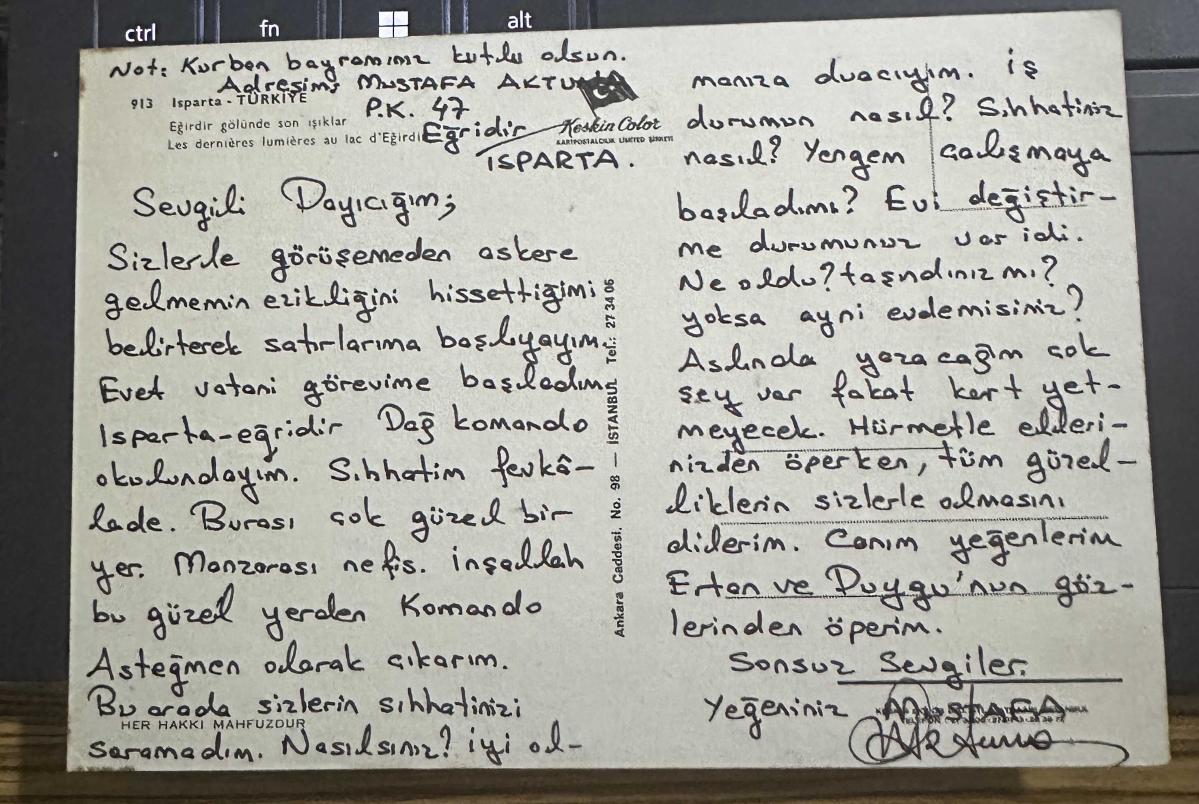 ctrl
fn
alt
Not: Kurban bayramınız kutlu olsun.
Adresim; MUSTAFA
P.K. 47
Eğridir
ISPARTA.
913 Isparta - TÜRKİYE
Eğirdir gölünde son ışıklar
Les dernières lumières au lac d'Eğirdi
Keskin Color
KARTPOSTALCILIK LIMITED ŞİRKETİ
Sevgili Dayıcığım;
Sizlerle görüşemeden askere
gelmemin ezikliğini hissettiğimi
belirterek satırlarıma başlıyayım.
Evet vatani görevime başladım
Isparta-eğridir Dağ komando
okulundayım. Sıhhatim fevkâ-
lade. Burası çok güzel bir
yer. Manzarası nefis. inşallah
bu güzel yerden Komando
Asteğmen olarak çıkarım.
Bu arada sizlerin sıhhatinizi
HER HAKKI MAHFUZDUR
soramadım. Nasılsınız? iyi ol-
Ankara Caddesi. No. 98 — İSTANBUL Tel.: 27 34 06
manıza duacıyım. iş
durumun nasıl? Sıhhatiniz
nasıl? Yengem çalışmaya
başladımı? Evi değiştir-
me durumunuz var idi.
Ne oldu? taşındınız mı?
yoksa ayni evdemisiniz?
Aslında yazacağım çok
şey var fakat kart yet-
meyecek. Hürmetle elleri-
nizden öperken, tüm güzel-
liklerin sizlerle olmasını
dilerim. Canım yeğenlerim
Ertan ve Duygu'nun göz-
lerinden öperim.
Sonsuz Sevgiler.
Yeğeniniz MUSTAFA